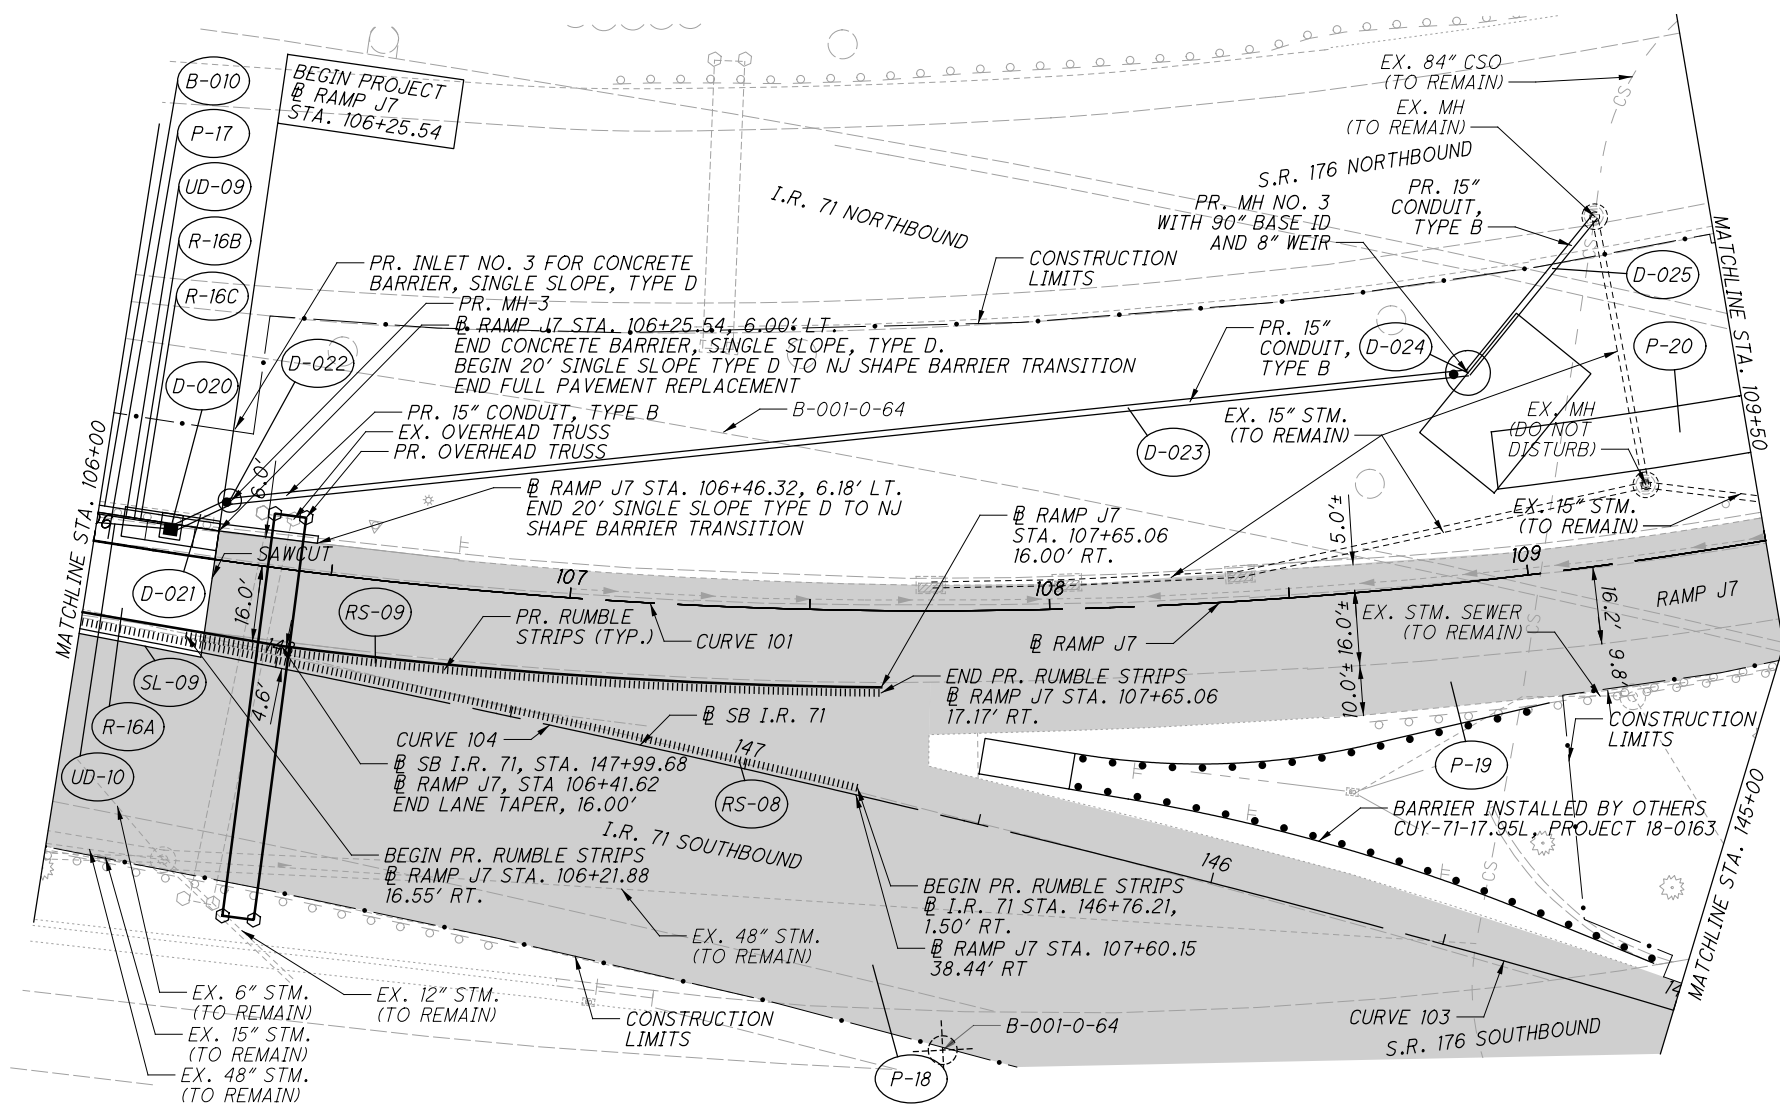 B-010
P-17
UD-09
R-16B
R-16C
D-020
D-022
BEGIN PROJECT
℄ RAMP J7
STA. 106+25.54
MATCHLINE STA. 106+00
I.R. 71 NORTHBOUND
S.R. 176 NORTHBOUND
EX. 84" CSO
(TO REMAIN)
EX. MH
(TO REMAIN)
PR. MH NO. 3
WITH 90" BASE ID
AND 8" WEIR
PR. 15"
CONDUIT,
TYPE B
CONSTRUCTION
LIMITS
D-025
MATCHLINE STA. 109+50
PR. INLET NO. 3 FOR CONCRETE
BARRIER, SINGLE SLOPE, TYPE D
PR. MH-3
℄ RAMP J7 STA. 106+25.54, 6.00' LT.
END CONCRETE BARRIER, SINGLE SLOPE, TYPE D.
BEGIN 20' SINGLE SLOPE TYPE D TO NJ SHAPE BARRIER TRANSITION
END FULL PAVEMENT REPLACEMENT
PR. 15" CONDUIT, TYPE B
EX. OVERHEAD TRUSS
PR. OVERHEAD TRUSS
B-001-0-64
PR. 15"
CONDUIT,
TYPE B
D-024
P-20
EX. 15" STM.
(TO REMAIN)
D-023
EX. MH
(DO NOT
DISTURB)
EX. 15" STM.
(TO REMAIN)
6.0'
℄ RAMP J7 STA. 106+46.32, 6.18' LT.
END 20' SINGLE SLOPE TYPE D TO NJ
SHAPE BARRIER TRANSITION
℄ RAMP J7
STA. 107+65.06
16.00' RT.
5.0'±
SAWCUT
107
108
109
D-021
16.0'
RS-09
PR. RUMBLE
STRIPS (TYP.)
CURVE 101
℄ RAMP J7
16.0'±
10.0'±
EX. STM. SEWER
(TO REMAIN)
16.2'
9.8'
RAMP J7
148
SL-09
4.6'
R-16A
UD-10
END PR. RUMBLE STRIPS
℄ RAMP J7 STA. 107+65.06
17.17' RT.
℄ SB I.R. 71
CURVE 104
147
℄ SB I.R. 71, STA. 147+99.68
℄ RAMP J7, STA 106+41.62
END LANE TAPER, 16.00'
RS-08
I.R. 71 SOUTHBOUND
CONSTRUCTION
LIMITS
P-19
BARRIER INSTALLED BY OTHERS
CUY-71-17.95L, PROJECT 18-0163
MATCHLINE STA. 145+00
BEGIN PR. RUMBLE STRIPS
℄ RAMP J7 STA. 106+21.88
16.55' RT.
146
BEGIN PR. RUMBLE STRIPS
℄ I.R. 71 STA. 146+76.21,
1.50' RT.
℄ RAMP J7 STA. 107+60.15
38.44' RT
EX. 48" STM.
(TO REMAIN)
EX. 6" STM.
(TO REMAIN)
EX. 15" STM.
(TO REMAIN)
EX. 48" STM.
(TO REMAIN)
EX. 12" STM.
(TO REMAIN)
CONSTRUCTION
LIMITS
B-001-0-64
P-18
CURVE 103
S.R. 176 SOUTHBOUND
CS
CS